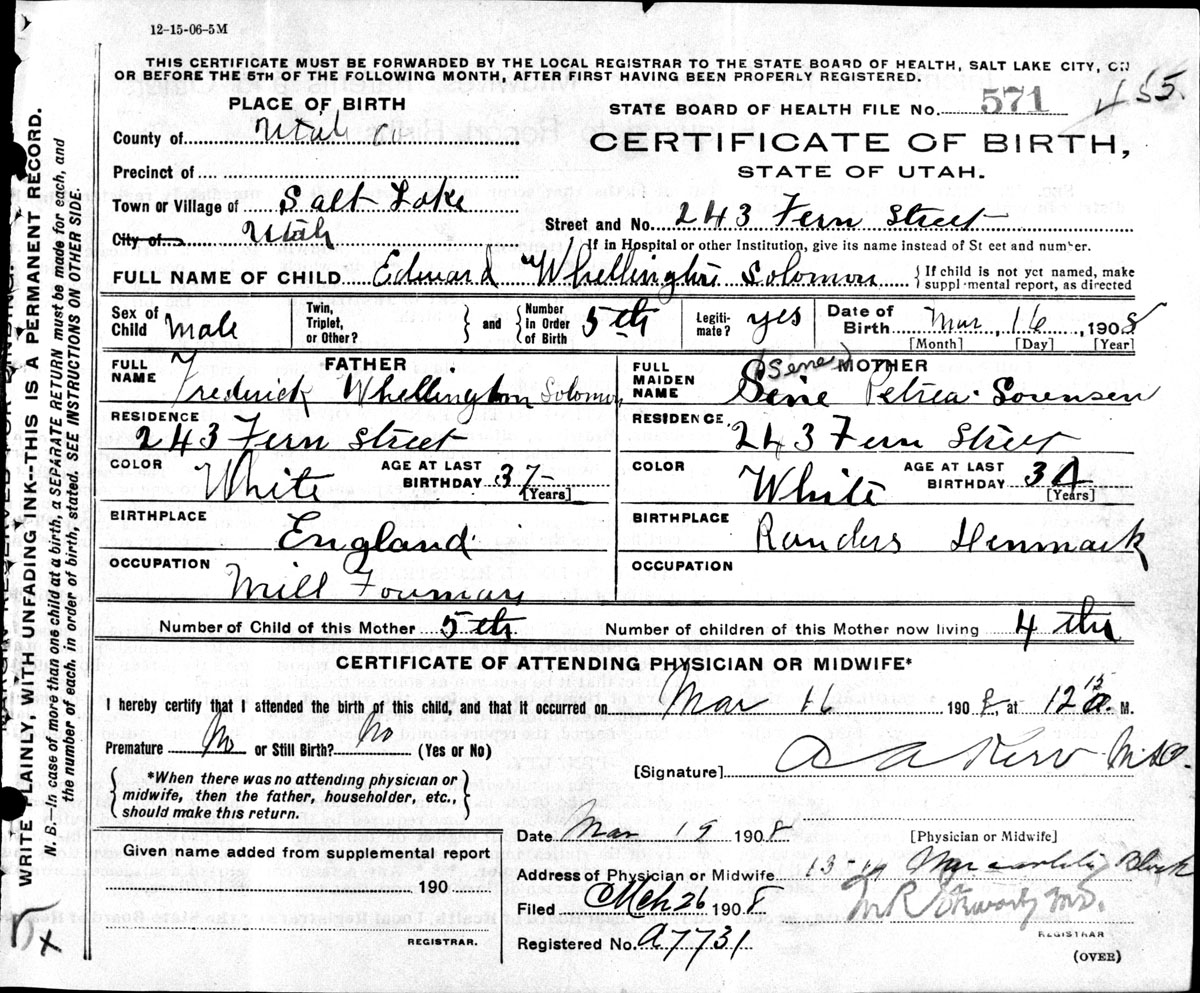 12-15-06-5M
THIS CERTIFICATE MUST BE FORWARDED BY THE LOCAL REGISTRAR TO THE STATE BOARD OF HEALTH, SALT LAKE CITY, ON
OR BEFORE THE 5TH OF THE FOLLOWING MONTH, AFTER FIRST HAVING BEEN PROPERLY REGISTERED.
PLACE OF BIRTH
STATE BOARD OF HEALTH FILE No. 571
County of Utah Co
CERTIFICATE OF BIRTH,
STATE OF UTAH.
Precinct of
Town or Village of Salt Lake
Street and No. 243 Fern Street
City of Utah
If in Hospital or other Institution, give its name instead of St eet and number.
FULL NAME OF CHILD Edward Whellington Solomon
If child is not yet named, make
suppl mental report, as directed
Sex of Child Male
Twin, Triplet, or Other?
and
Number in Order of Birth 5th
Legitimate? yes
Date of Birth Mar, 16, 1908
[Month] [Day] [Year]
FATHER
FULL NAME Frederick Whellington Solomon
RESIDENCE
243 Fern Street
COLOR White
AGE AT LAST BIRTHDAY 37
[Years]
BIRTHPLACE England
OCCUPATION Mill Fourman
MOTHER
(Sene)
FULL MAIDEN NAME Sine Petrea Sorensen
RESIDENCE.
243 Fern Street
COLOR White
AGE AT LAST BIRTHDAY 34
[Years]
BIRTHPLACE Randers Denmark
OCCUPATION
Number of Child of this Mother 5th
Number of children of this Mother now living 4 th
CERTIFICATE OF ATTENDING PHYSICIAN OR MIDWIFE*
I hereby certify that I attended the birth of this child, and that it occurred on Mar 16 1908, at 12 15 a. M.
Premature No or Still Birth? No (Yes or No)
[Signature] M.D.
*When there was no attending physician or
midwife, then the father, householder, etc.,
should make this return.
Date Mar 19 1908
[Physician or Midwife]
Given name added from supplemental report
Address of Physician or Midwife 13-14 Block
190
Filed Mch 26 1908
M.D.
REGISTRAR.
REGISTRAR
Registered No. a7731
(OVER)
WRITE PLAINLY, WITH UNFADING INK--THIS IS A PERMANENT RECORD.
N. B.—In case of more than one child at a birth, a SEPARATE RETURN must be made for each, and
the number of each, in order of birth, stated. SEE INSTRUCTIONS ON OTHER SIDE.